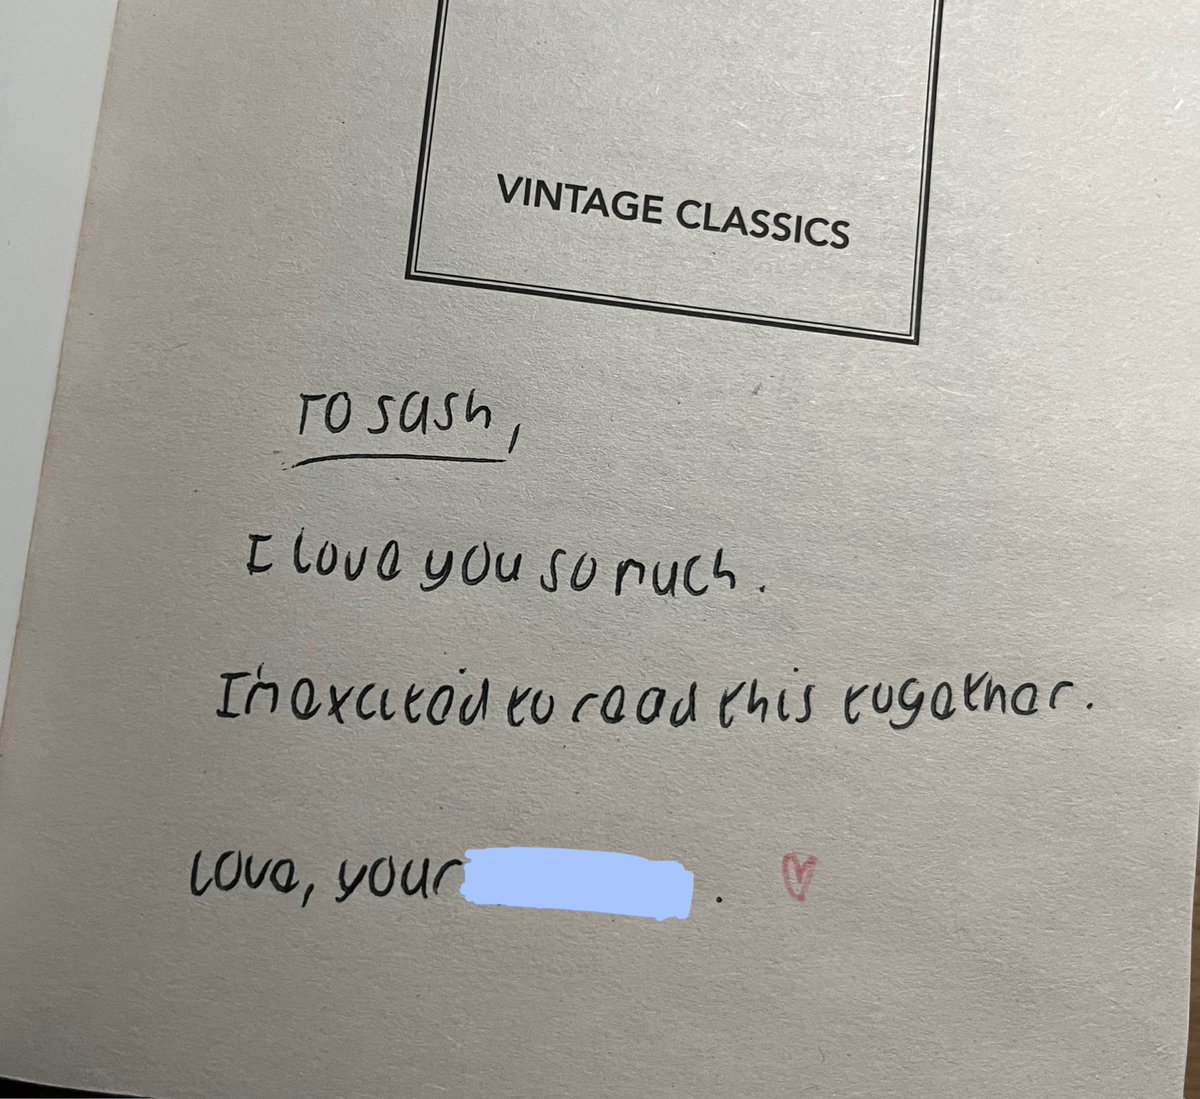 VINTAGE CLASSICS
To sash,
I love you so much.
I'm excited to read this together.
Love, your .